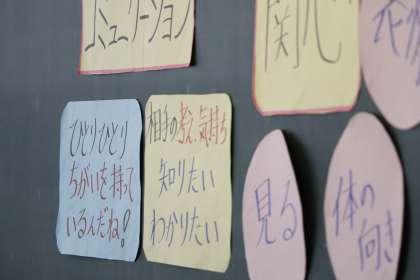 コミュニケーション
関心
ひとりひとり
ちがいを持って
いるんだね!
相手の考え、気持ち
知りたい
わかりたい
見る
体の
向き